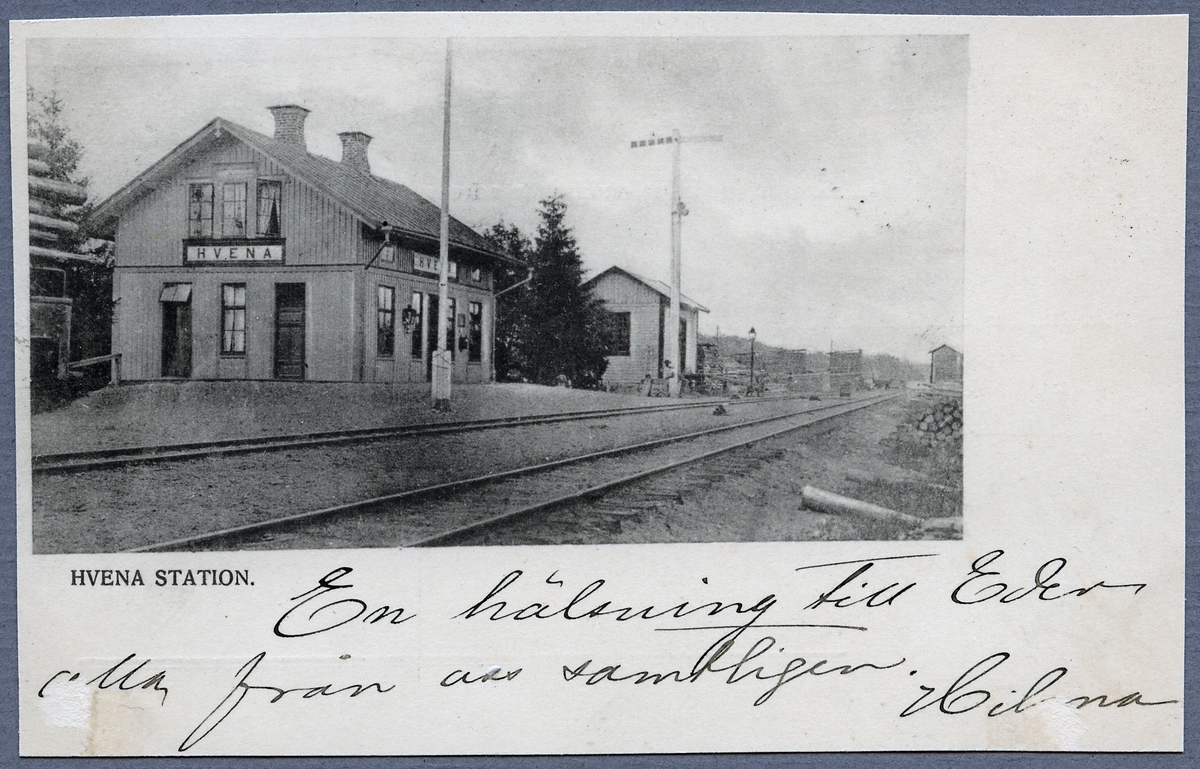 HVENA
HVENA
HVENA STATION.
En hälsning till Eder
alla från oss samtligen.
Hilma